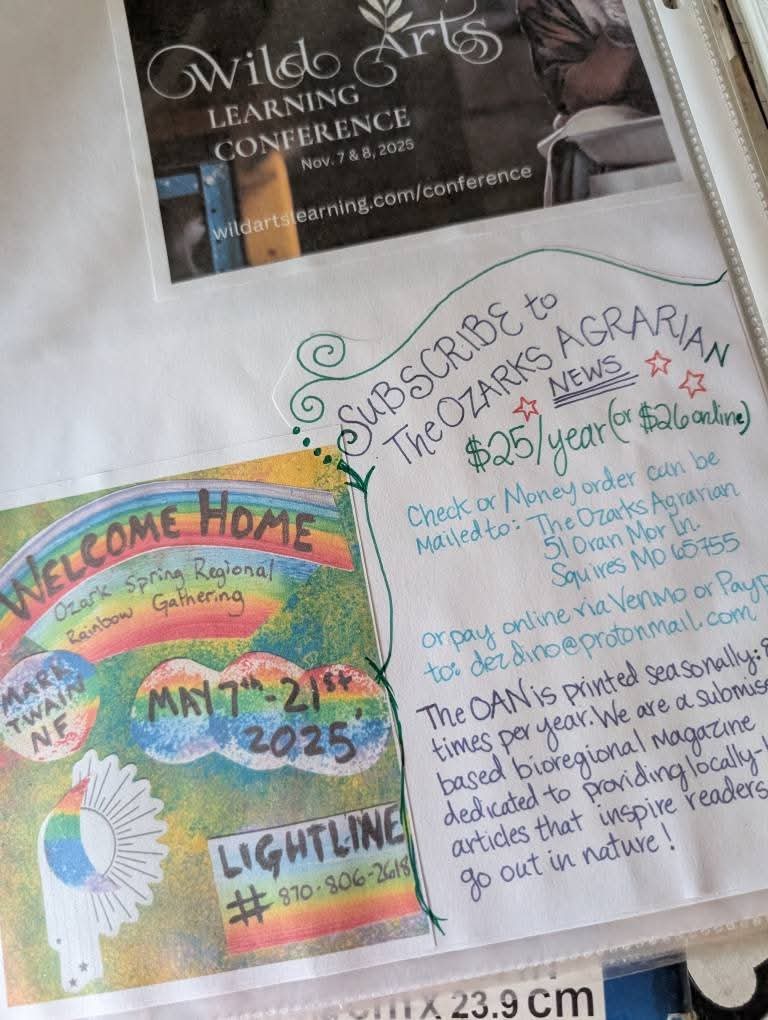 Wild Arts
LEARNING
CONFERENCE
Nov. 7 & 8, 2025
wildartslearning.com/conference
SUBSCRIBE to
The OZARKS AGRARIAN
NEWS
$25/year (or $26 online)
Check or Money order can be
Mailed to: The Ozarks Agrarian
51 Oran Mor ln.
Squires MO 65755
or pay online via Venmo or
to: dezdino@protonmail.com
The OAN is printed seasonally:
times per year. We are a
based bioregional magazine
dedicated to providing
articles that inspire readers
go out in nature!
WELCOME HOME
Ozark Spring Regional
Rainbow Gathering
MARK
TWAIN
NF
MAY 7th - 21st
2025
LIGHTLINE
# 870-806-2618
X 23.9 cm